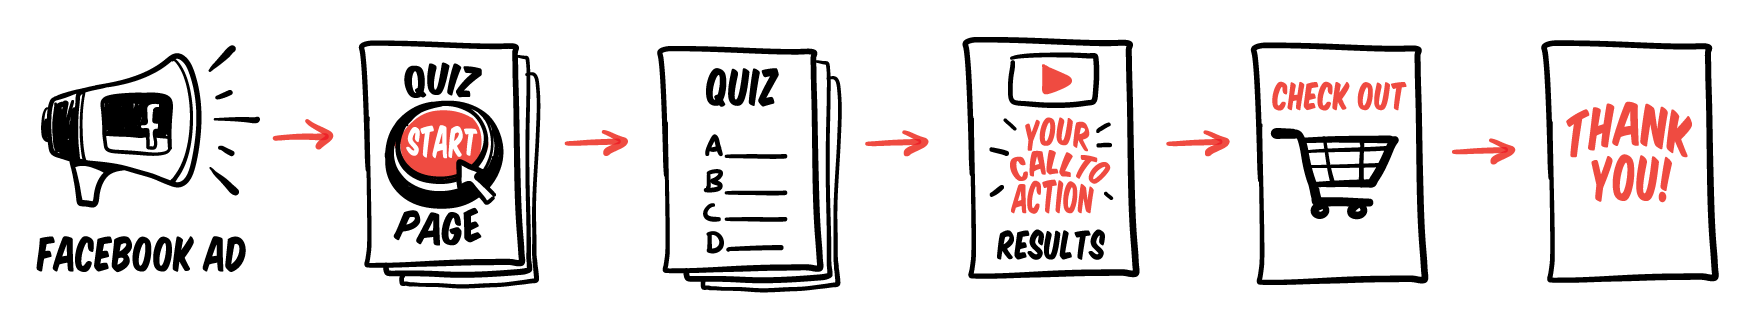 f
FACEBOOK AD
QUIZ
START
PAGE
QUIZ
A
B
C
D
YOUR
CALL TO
ACTION
RESULTS
CHECK OUT
THANK
YOU!